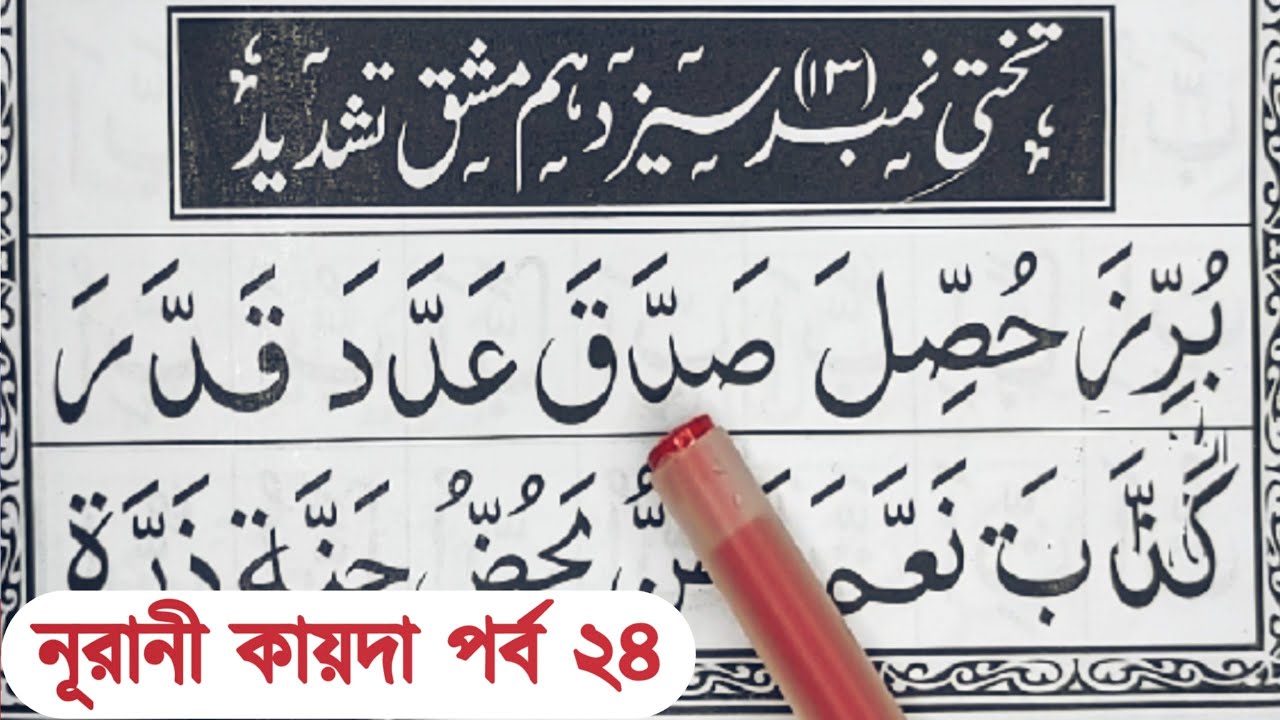 تختی نمبر (۱۳) سیزدہم مشق تشدید
بُرِّزَ حُصِّلَ صَدَّقَ عَدَّدَ قَدَّرَ
كَذَّبَ نَعَّمَ يَحُضُّ جَنَّةَ ذَرَّةَ
নূরানী কায়দা পর্ব ২৪